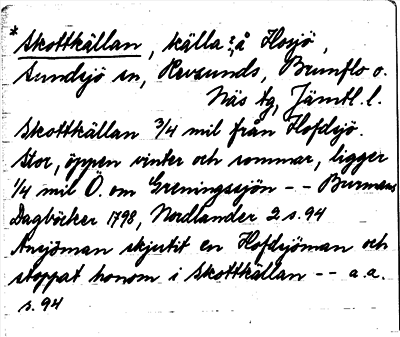 * Skottkällan, källa?, å Hosjö,
Sundsjö sn, Revsunds, Brunflo o.
Näs tg, Jämtl. l.
Skottkällan 3/4 mil från Hofdsjö.
Stor, öppen vinter och sommar, ligger
1/4 mil Ö. om Greningssjön -- Burmans
Dagböcker 1798, Nordlander 2 s. 94
Ansjöman skjutit en Hofdsjöman och
stoppat honom i Skottkällan -- a.a.
s. 94